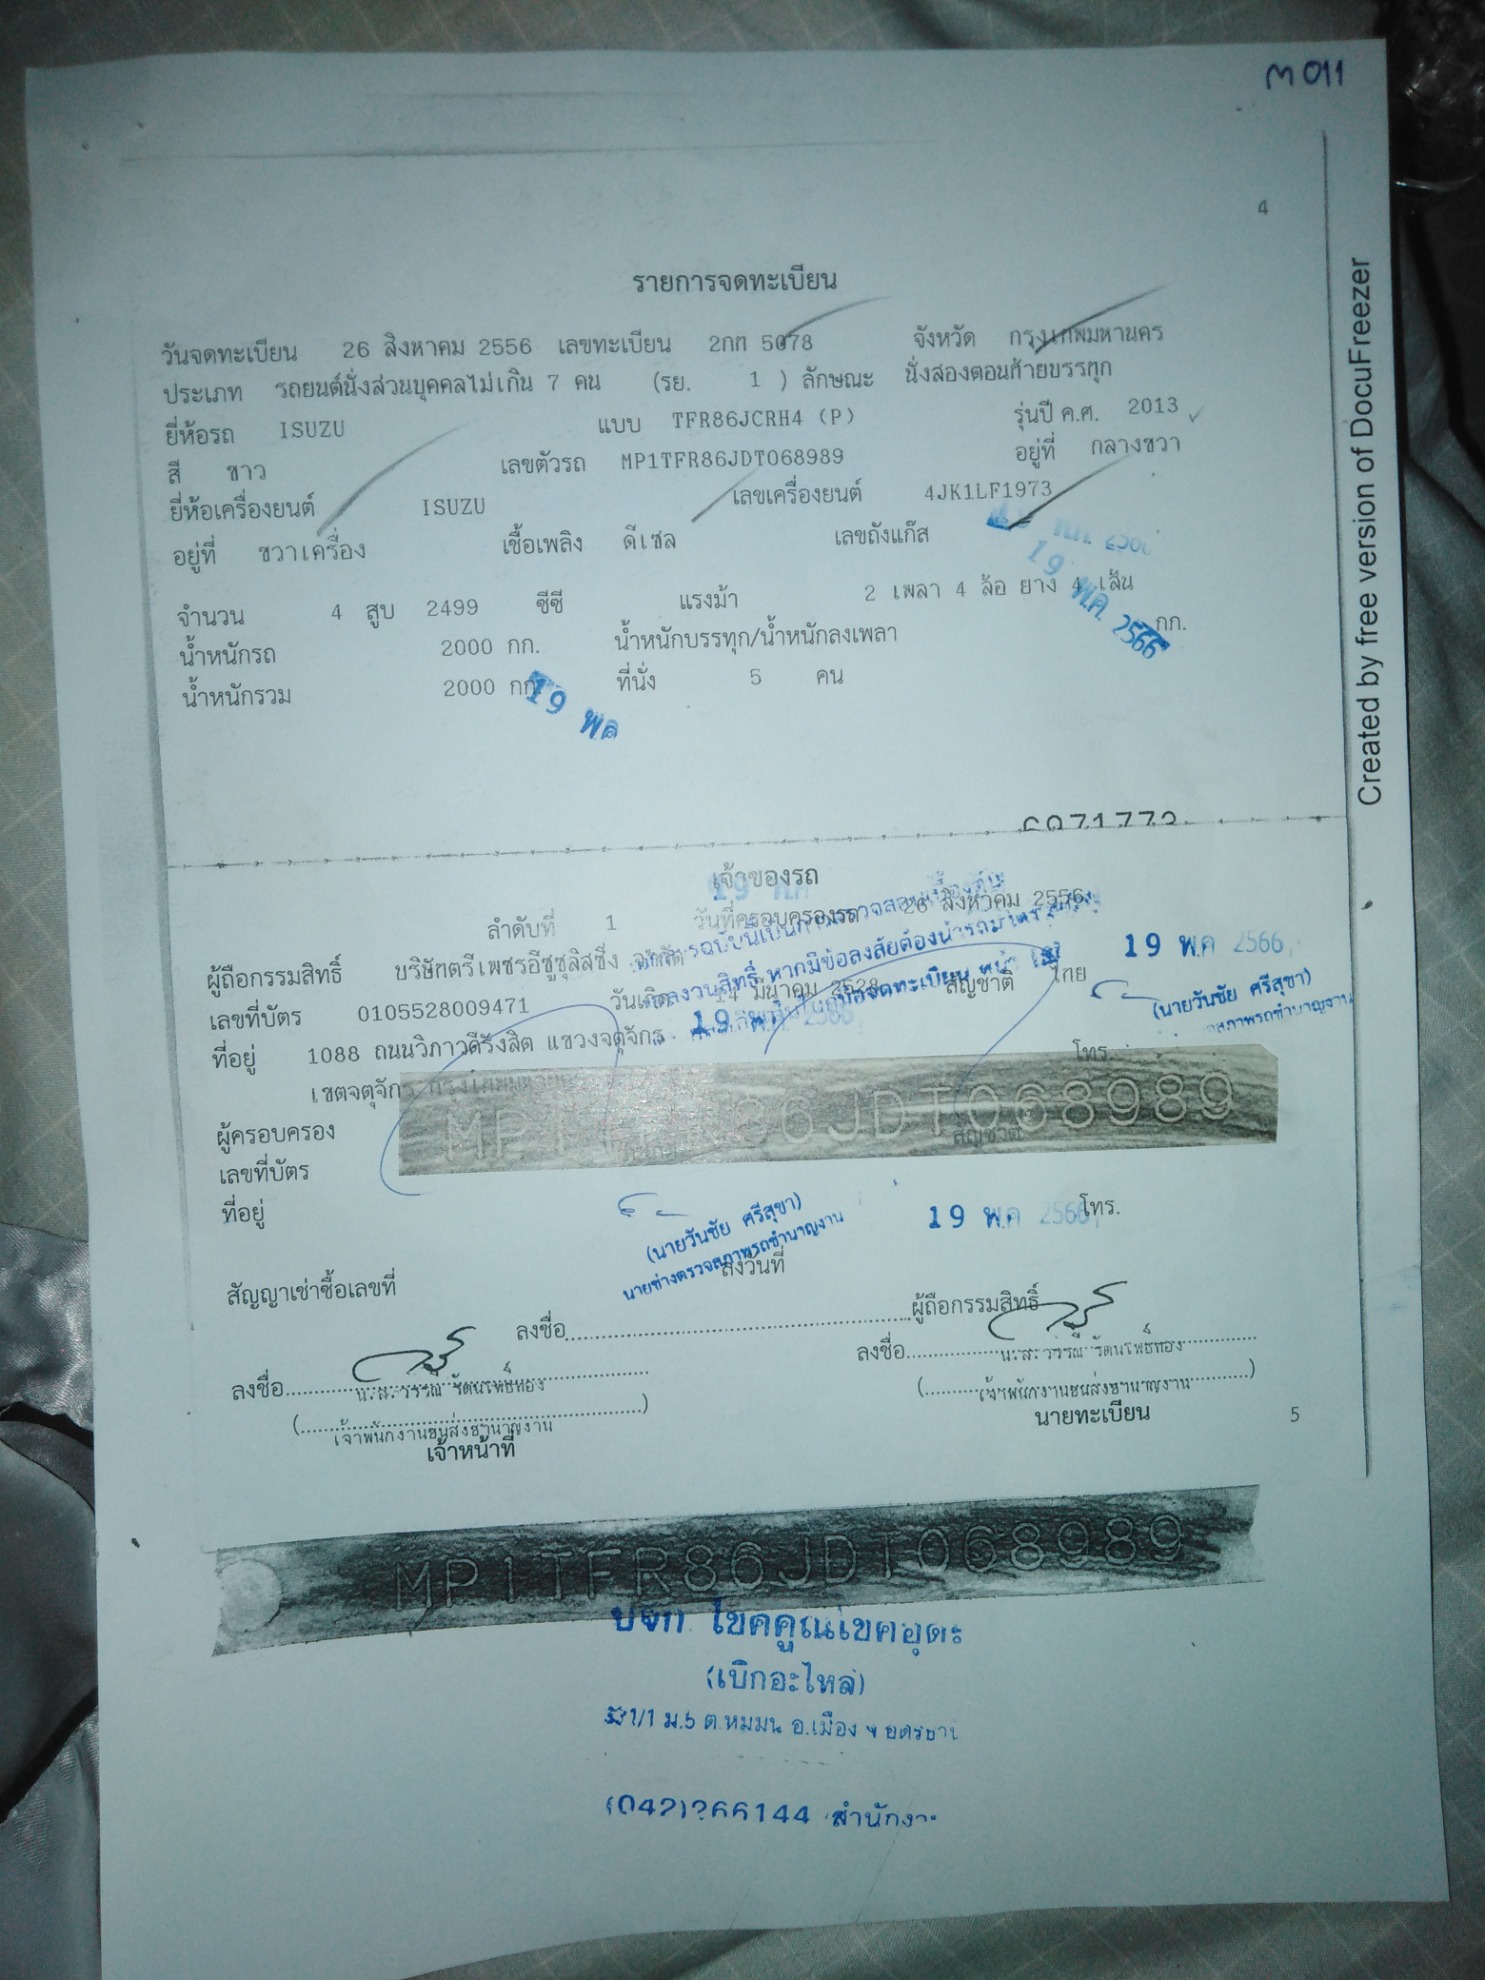 ฅ 011
4
รายการจดทะเบียน
วันจดทะเบียน 26 สิงหาคม 2556 เลขทะเบียน 2กท 5078 จังหวัด กรุงเทพมหานคร
ประเภท รถยนต์นั่งส่วนบุคคลไม่เกิน 7 คน (รย. 1 ) ลักษณะ นั่งสองตอนท้ายบรรทุก
ยี่ห้อรถ ISUZU แบบ TFR86JCRH4 (P) รุ่นปี ค.ศ. 2013
สี ขาว เลขตัวรถ MP1TFR86JDT068989 อยู่ที่ กลางขวา
ยี่ห้อเครื่องยนต์ ISUZU เลขเครื่องยนต์ 4JK1LF1973
อยู่ที่ ขวาเครื่อง เชื้อเพลิง ดีเซล เลขถังแก๊ส
19 พ.ค. 2566
จำนวน 4 สูบ 2499 ซีซี แรงม้า 2 เพลา 4 ล้อ ยาง 4 เส้น
น้ำหนักรถ 2000 กก. น้ำหนักบรรทุก/น้ำหนักลงเพลา กก.
น้ำหนักรวม 2000 กก. ที่นั่ง 5 คน
19 พ.ค
6071773
เจ้าของรถ
ลำดับที่ 1 วันที่ครอบครองรถ 26 สิงหาคม 2556
ผู้ถือกรรมสิทธิ์ บริษัทตรีเพชรอีซูซุลิสซิ่ง จำกัด
19 พ.ค 2566
เลขที่บัตร 0105528009471 วันเกิด 14 มีนาคม 2528 สัญชาติ ไทย
(นายวันชัย ศรีสุขา)
ที่อยู่ 1088 ถนนวิภาวดีรังสิต แขวงจตุจักร
19 พ.ค. 2566
โทร.
เขตจตุจักร กรุงเทพมหานคร
MP1TFR86JDT068989
ผู้ครอบครอง
เลขที่บัตร สัญชาติ
ที่อยู่ โทร.
(นายวันชัย ศรีสุขา)
นายช่างตรวจสภาพรถชำนาญงาน
19 พ.ค 2566
สัญญาเช่าซื้อเลขที่ ลงวันที่
ลงชื่อ ผู้ถือกรรมสิทธิ์
ลงชื่อ ลงชื่อ
เจ้าพนักงานขนส่งชำนาญงาน เจ้าพนักงานขนส่งชำนาญงาน
เจ้าหน้าที่ นายทะเบียน
5
MP1TFR86JDT068989
(เบิกอะไหล่)
(042)266144 สำนักงาน
Created by free version of DocuFreezer